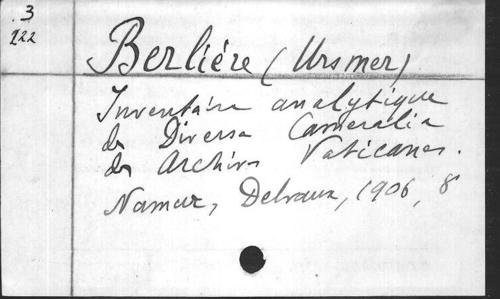 3
222
Berlière (Ursmer)
Inventaire analytique
des Diversa Cameralia
des Archives Vaticanes.
Namur, Delvaux, 1906, 8°